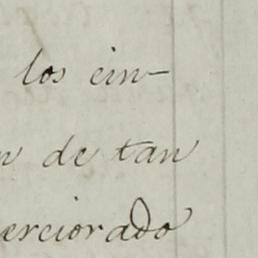 los cin-
n de tan
erciorado